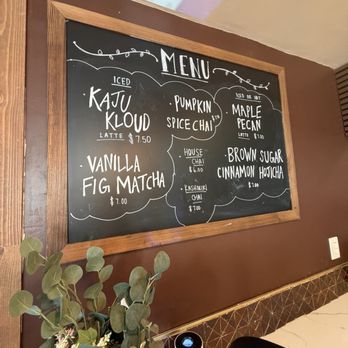 MENU
ICED
· KAJU
KLOUD
LATTE $7.50
· VANILLA
FIG MATCHA
$7.00
· PUMPKIN
SPICE CHAI
· HOUSE
CHAI
$6.00
· KASHMIRI
CHAI
$7.00
ICED OR HOT
· MAPLE
PECAN
LATTE $7.00
· BROWN SUGAR
CINNAMON HOJICHA
$7.00